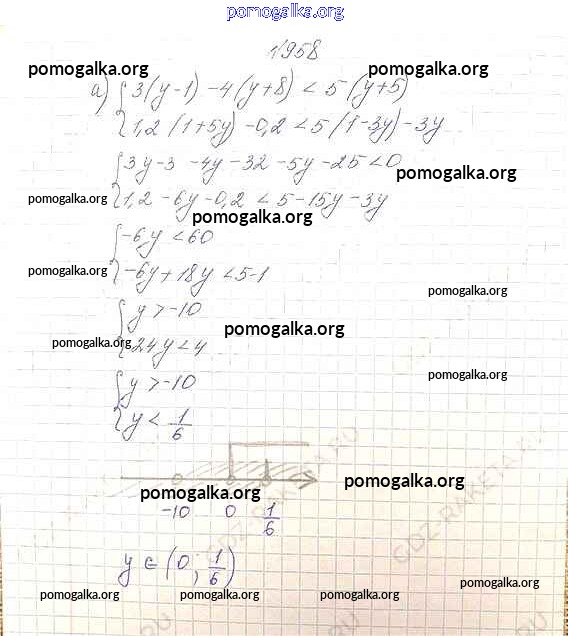 pomogalka.org
1958
pomogalka.org pomogalka.org
а) { 3(y-1) - 4(y+8) < 5(y+5)
1,2(1+5y) - 0,2 < 5(1-3y) - 3y
{ 3y - 3 - 4y - 32 - 5y - 25 < 0
pomogalka.org
1,2 - 6y - 0,2 < 5 - 15y - 3y
pomogalka.org
pomogalka.org
{ -6y < 60
-6y + 18y < 5-1
pomogalka.org
pomogalka.org
{ y > -10
pomogalka.org
24y < 4
pomogalka.org
pomogalka.org
{ y > -10
y < 1/6
GDZ-RAKETA.RU
pomogalka.org pomogalka.org
-10 0 1/6
y ∈ (0; 1/6)
pomogalka.org pomogalka.org pomogalka.org pomogalka.org